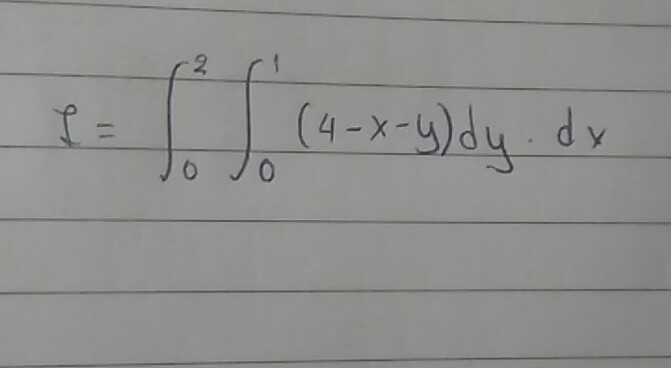 I = ∫₀² ∫₀¹ (4-x-y)dy · dx